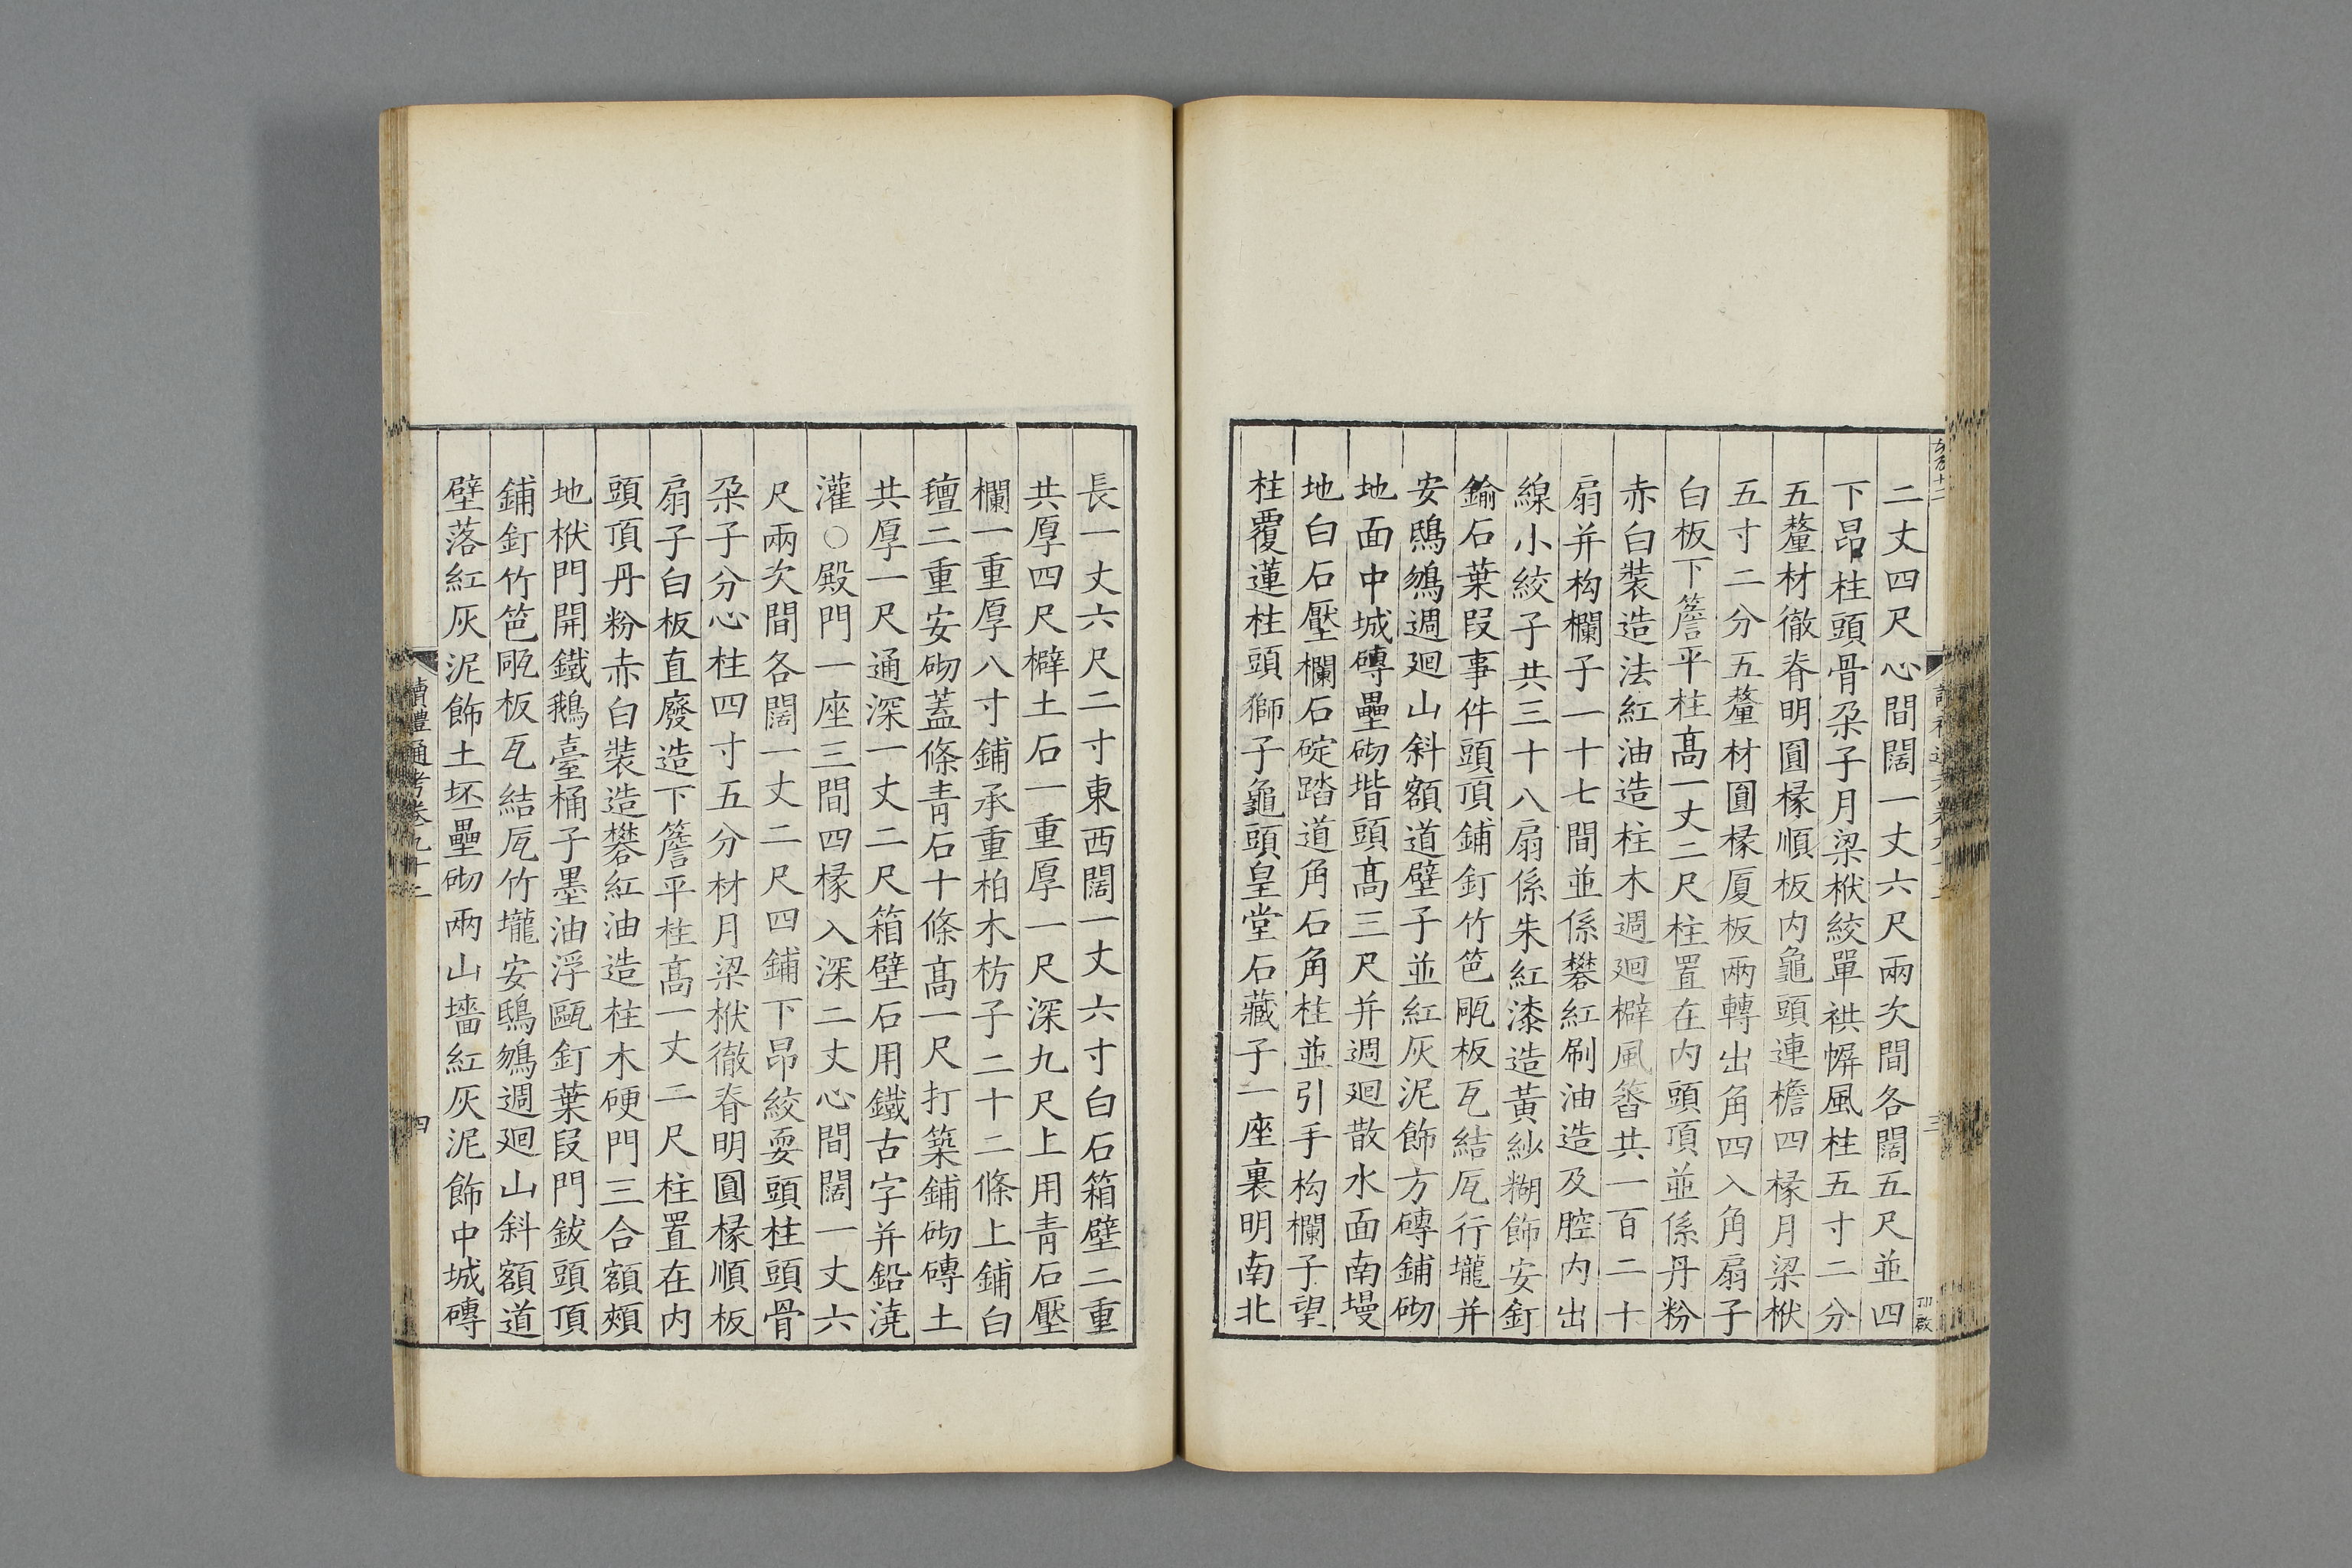 二丈四尺心間闊一丈六尺兩次間各闊五尺並四
下昂柱頭骨朶子月梁栿絞單栱幈風柱五寸二分
五釐材徹脊明圓椽順板内龜頭連檐四椽月梁栿
五寸二分五釐材圓椽厦板兩轉出角四入角扇子
白板下簷平柱髙一丈二尺柱置在内頭頂並係丹粉
赤白裝造法紅油造柱木週廻檘風䈉共一百二十
扇并构欄子一十七間並係礬紅刷油造及腔内出
線小絞子共三十八扇係朱紅漆造黃紗糊飾安釘
鍮石葉段事件頭頂鋪釘竹笆㼾板瓦結瓦行壠并
安鴟鵂週廻山斜額道壁子並紅灰泥飾方磚鋪砌
地面中城磚壘砌堦頭髙三尺并週廻散水面南墁
地白石壓欄石碇踏道角石角柱並引手构欄子望
柱覆蓮柱頭獅子龜頭皇堂石藏子一座裏明南北
長一丈六尺二寸東西闊一丈六寸白石箱壁二重
共厚四尺檘土石一重厚一尺深九尺上用青石壓
欄一重厚八寸鋪承重柏木枋子二十二條上鋪白
氊二重安砌蓋條青石十條髙一尺打築鋪砌磚土
共厚一尺通深一丈二尺箱壁石用鐵古字并鉛澆
灌○殿門一座三間四椽入深二丈心間闊一丈六
尺兩次間各闊一丈二尺四鋪下昂絞耍頭柱頭骨
朶子分心柱四寸五分材月梁栿徹脊明圓椽順板
扇子白板直廢造下簷平柱髙一丈二尺柱置在内
頭頂丹粉赤白裝造礬紅油造柱木硬門三合額頰
地栿門開鐵鵝臺桶子墨油浮甌釘葉段門鈸頭頂
鋪釘竹笆㼾板瓦結瓦竹壠安鴟鵂週廻山斜額道
壁落紅灰泥飾土坯壘砌兩山墻紅灰泥飾中城磚
讀禮通考卷九十二
四